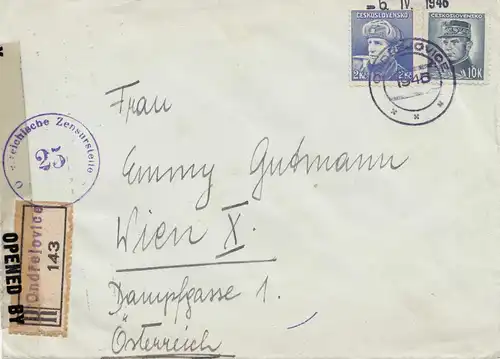 - 6. IV. 1946
ČESKOSLOVENSKO
2Kčs
ČESKOSLOVENSKO
10K
ONDŘEJOVICE
1946
* * *
Österreichische Zensurstelle
25
Ondřejovice
143
OPENED BY
Frau
Emmy Gutmann
Wien X.
Dampfgasse 1.
Österreich